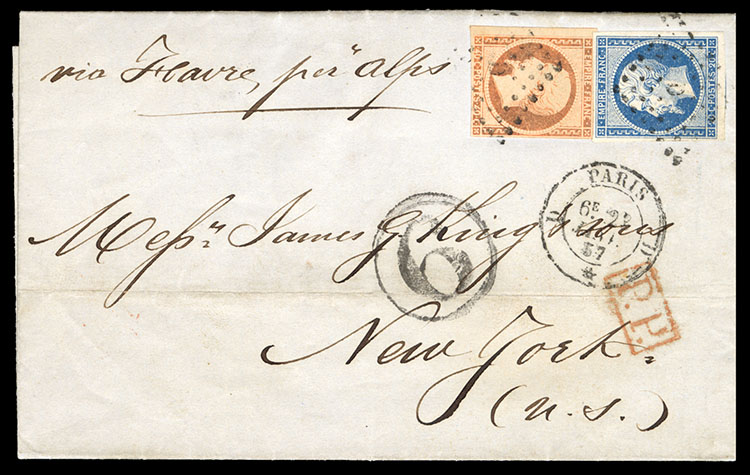 via Havre, per "Alps
EMPIRE FRANC.
20 · POSTES · 20
PARIS
6E
57
Messrs. James G King & Sons
6
P.P.
New York.
(U.S.)